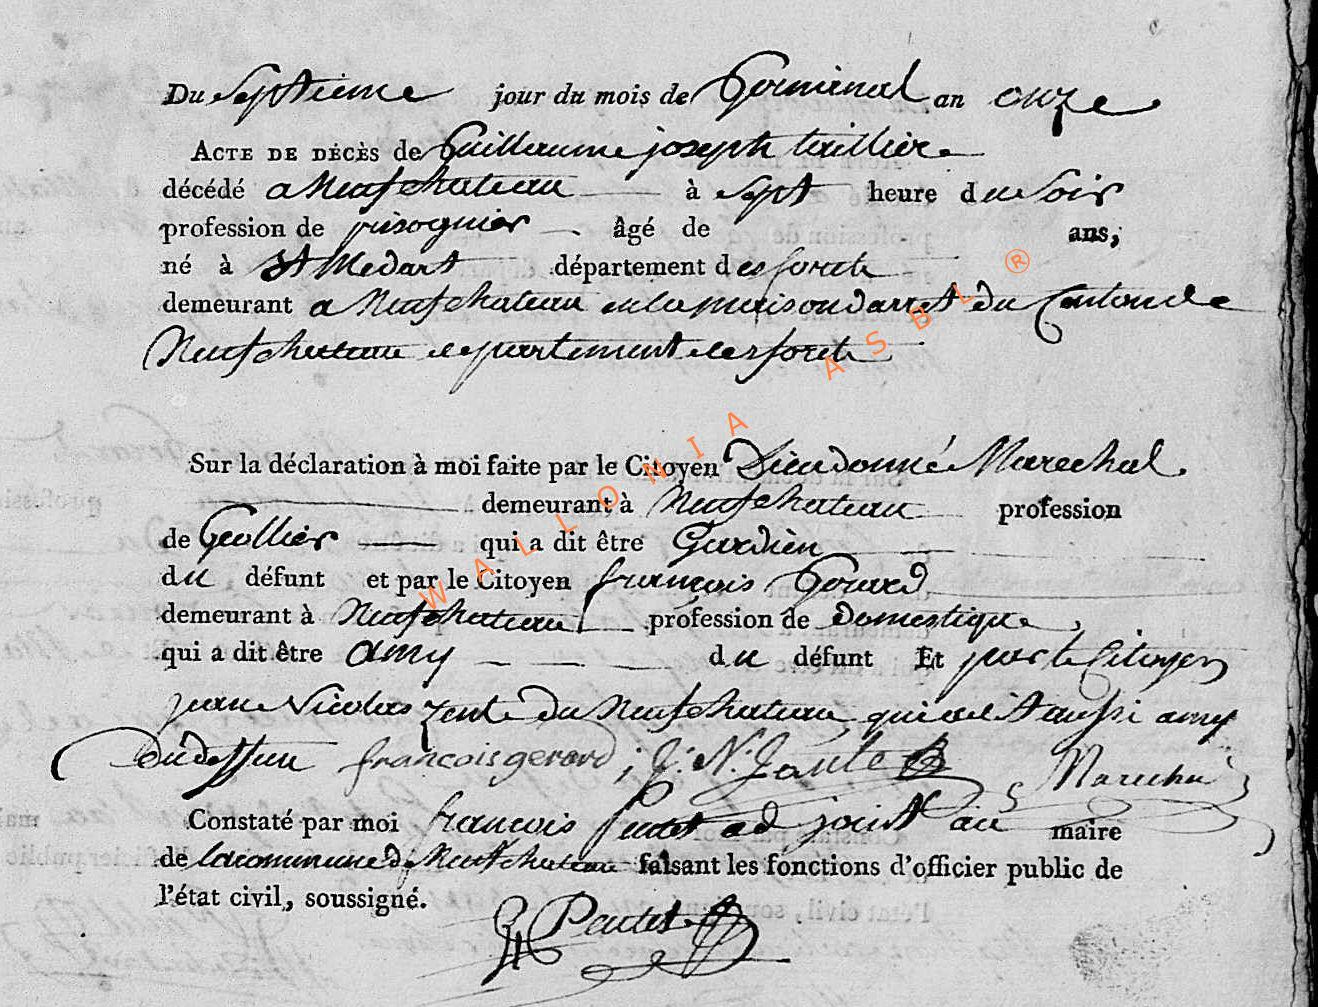 Du Septieme jour du mois de Germinal an onze
ACTE DE DÉCÈS de Guillaume joseph taillier
décédé a Neufchateau à Sept heure du Soir
profession de prisognier âgé de ans,
né à St Medart département des forets
demeurant a Neufchateau en la maison darret du Canton de
Neufchateau departement des foret
Sur la déclaration à moi faite par le Citoyen Dieudonné Marechal
demeurant à Neufchateau profession
de Geollier qui a dit être Gardien
du défunt et par le Citoyen françois Gerard
demeurant à Neufchateau profession de Domestique
qui a dit être amy du défunt Et par le Citoyen
jean Nicolas zente du Neufchateau qui a dit aussi amy
du deffun françois gerard ; J: N: Marechal
Constaté par moi françois adjoint au maire
de la commune de Neufchateau faisant les fonctions d'officier public de
l'état civil, soussigné.
WALLONIA ASBL ®